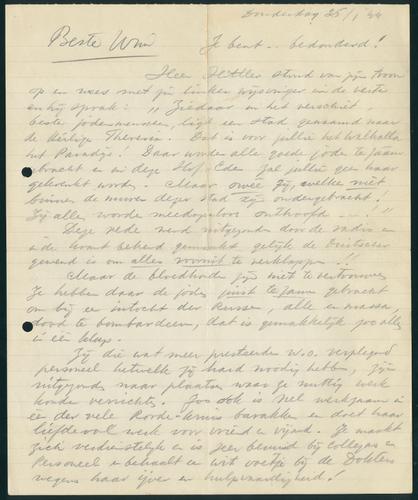 Donderdag 25/1 '44
Beste Wim
Je bent .. bedonderd!
Heer Hitler stond van zijn troon
op en wees met zijn linker wijsvinger in de verte
en hij sprak: " Ziedaar in het verschiet
beste jodenmenschen, ligt een stad genaamd naar
de Heilige Theresia. Dat is voor jullie het Walhalla
het Paradijs! Daar worden alle goede joden te zaam
gebracht en in deze Hof Eden zal jullie geen haar
gekrenkt worden. Maar owee zij, welke niet
binnen de muren dezer stad zijn ondergebracht!
Zij alle worden meedogenloos onthoofd ... !"
Deze rede werd uitgezonden door de radio en
in de krant bekend gemaakt gelijk de Duitscher
gewend is om alles vooruit te verklappen ..!!
Maar de bloedhonden zijn niet te vertrouwen
Ze hebben daar de joden juist te zaam gebracht
om bij een intocht der Russen, alle en massa,
dood te bombardeeren, dat is gemakkelijk zoo alles
in één
Zij die wat meer presteerden w.o. verplegend
personeel hetwelk zij hard noodig hebben, zijn
uitgezonden naar plaatsen waar ze nuttig werk
konden verrichten. Zoo ook is Nel werkzaam in
één der vele Roode-Kruis barakken en doet haar
liefdevol werk voor vriend en vijand. Ze maakt
zich verdienstelijk en is zeer bemind bij Collegas en
Personeel en behaalt een wit voetje bij de Dokters
wegens haar ijver en hulpvaardigheid!